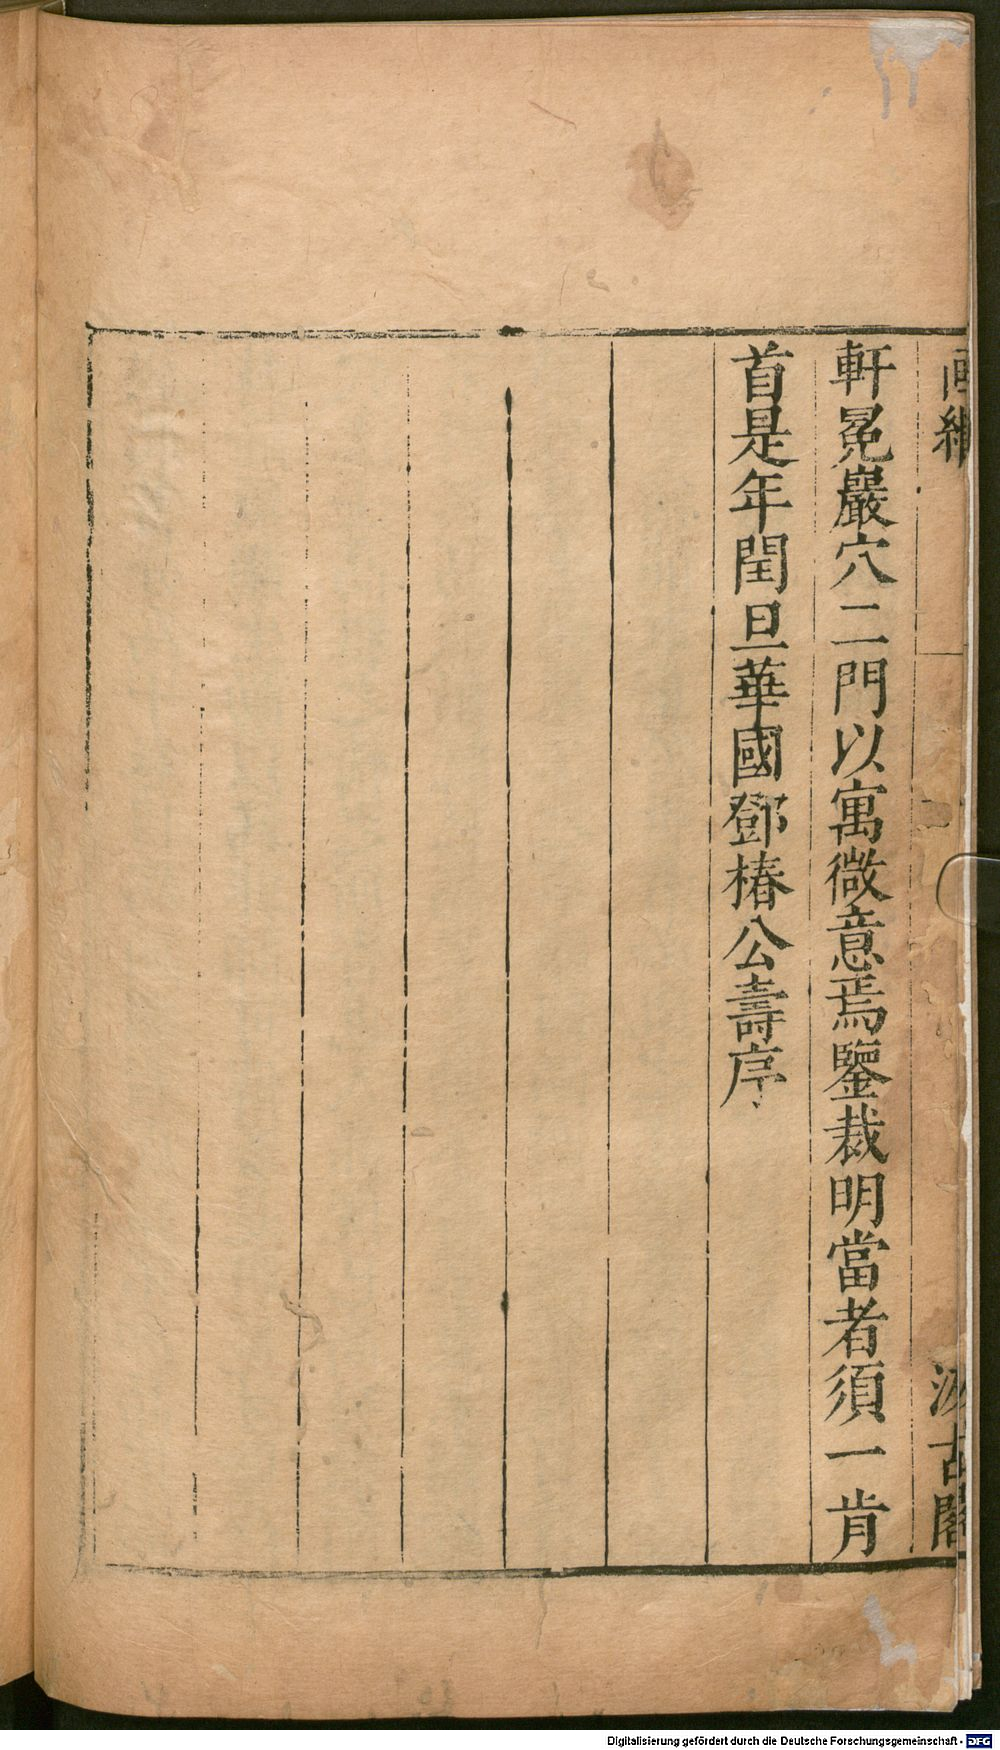 画繼
軒冕巖穴二門以寓微意焉鑒裁明當者須一肯
首是年閏旦華國鄧椿公壽序
汲古閣
Digitalisierung gefördert durch die Deutsche Forschungsgemeinschaft - DFG